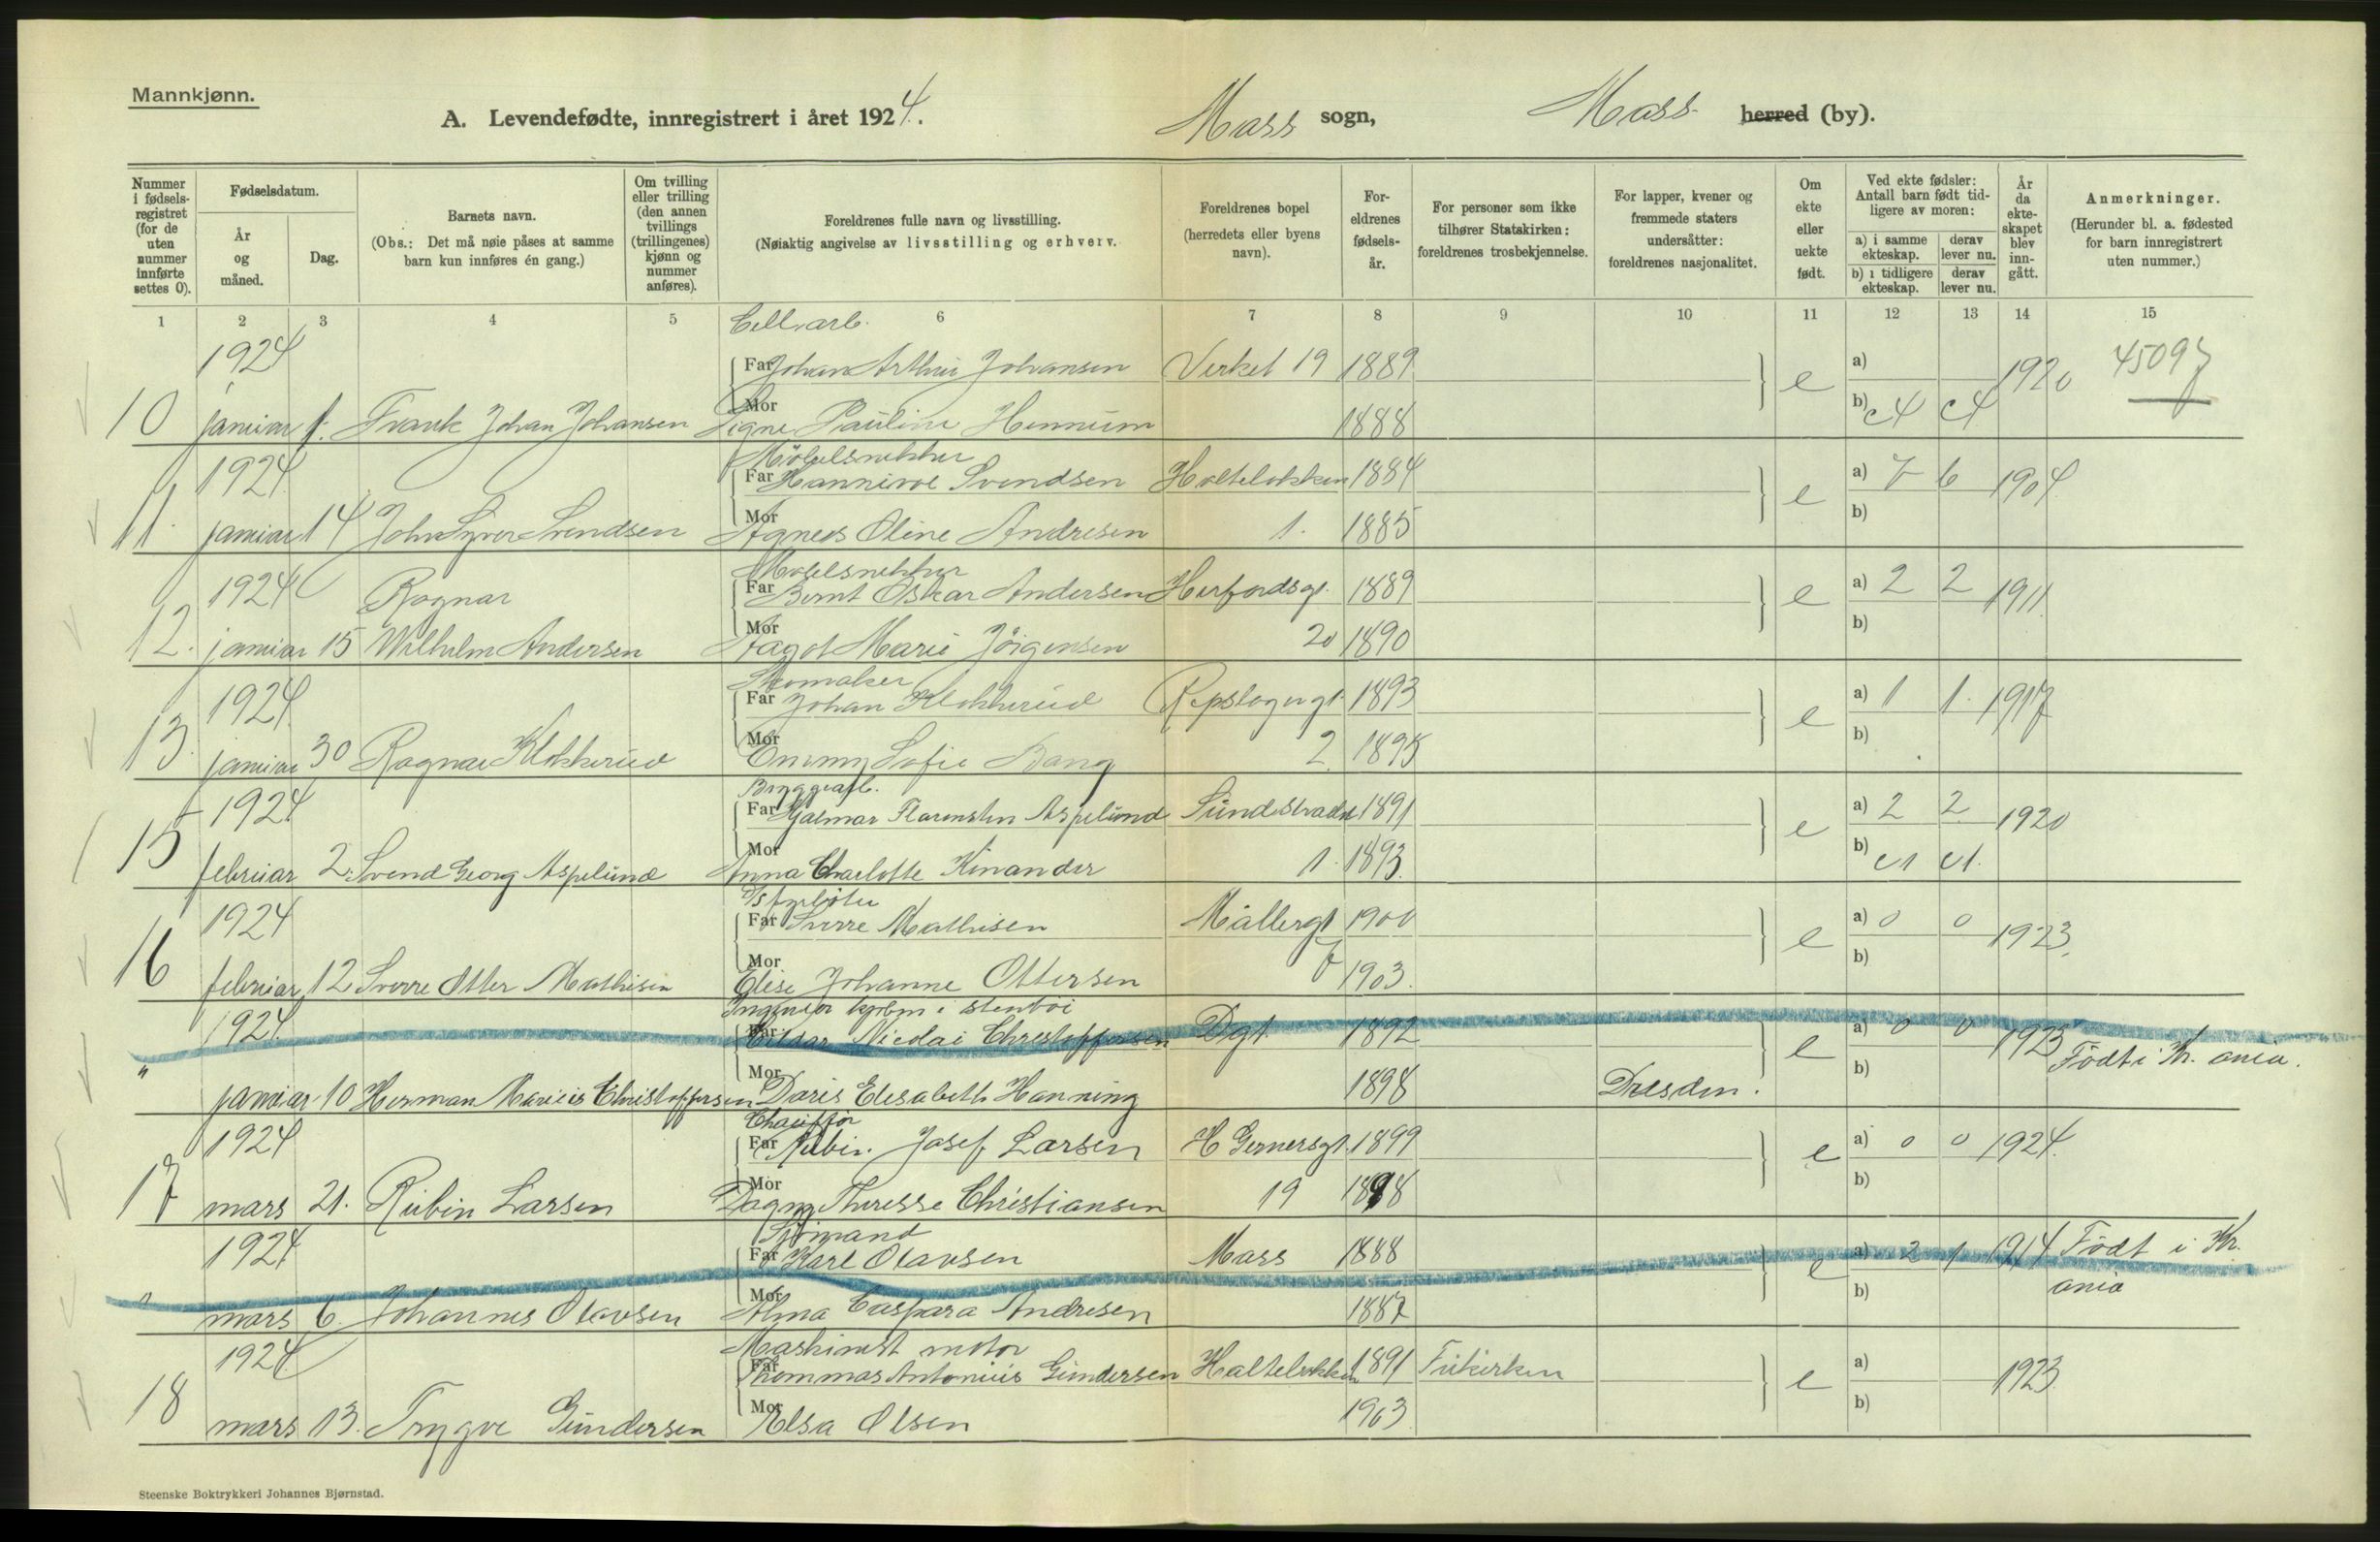 Mannkjønn.
A. Levendefødte, innregistrert i året 1924. Mass sogn, Mass herred (by).
Nummer i fødsels-registret (for de uten nummer innførte settes 0).
Fødselsdatum.
År og måned.
Dag.
Barnets navn.
(Obs.: Det må nøie påses at samme barn kun innføres én gang.)
Om tvilling eller trilling (den annen tvillings (trillingenes) kjønn og nummer anføres).
Foreldrenes fulle navn og livsstilling.
(Nøiaktig angivelse av livsstilling og erhverv.
Foreldrenes bopel (herredets eller byens navn).
For-eldrenes fødsels-år.
For personer som ikke tilhører Statskirken: foreldrenes trosbekjennelse.
For lapper, kvener og fremmede staters undersåtter: foreldrenes nasjonalitet.
Om ekte eller uekte født.
Ved ekte fødsler: Antall barn født tid-ligere av moren:
a) i samme ekteskap. derav lever nu.
b) i tidligere ekteskap. derav lever nu.
År da ekte-skapet blev inn-gått.
Anmerkninger.
(Herunder bl. a. fødested for barn innregistrert uten nummer.)
1 2 3 4 5 6 7 8 9 10 11 12 13 14 15
Cell.arb.
1924 Far Johan Arthur Johansen Verket 19 1889 e a) 1920 45097
10 januar 1. Frank Johan Johansen Mor Signe Pauline Hennum 1888 b) 4 4
Möbelsnekker
1924 Far Hannivoe Svendsen Holteløkken 1884 e a) 7 6 1904
11. januar 14 John Syver Svendsen Mor Agnes Oline Andresen 1. 1885 b)
Möbelsnekker
1924 Ragnar Far Bernt Oskar Andersen Herfordsgt. 1889 e a) 2 2 1911
12. januar 15 Wilhelm Andersen Mor Aagot Marie Jörgensen 20 1890 b)
Skomaker
1924 Far Johan Klokkerud Repslagergt 1893 e a) 1 1. 1917
13. januar 30 Ragnar Klokkerud Mor Emmy Sofie Bang 2. 1895 b)
Bryggearb.
1924 Far Hjalmar Florenstin Aspelund Sundestredet 1891 e a) 2 2 1920
15 februar 2. Svend Georg Aspelund Mor Anna Charlotte Kinander 1. 1893. b) 1 1.
D/s fyrböter
1924 Far Sverre Mathisen Mällergt 1900 e a) 0 0 1923.
16 februar 12 Sverre Otter Mathisen Mor Elise Johanne Ottersen 7 1903. b)
1924 Far Nicolai Christoffersen Dgt. 1892 e a) 0 0 1923 Födt i Kr. ania.
" januar 10 Herman Marius Christoffersen Mor Doris Elisabeth Hanning 1898 Dresden. b)
Chaufför
1924 Far Rubin Josef Larsen H Gernersgt. 1899 e a) 0 0 1924.
17 mars 21. Rubin Larsen Mor Dagny Theresse Christiansen 19 1898 b)
Sjömand
1924 Far Karl Olavsen Mass 1888 e a) 2 1 1914 Födt i Kr.
" mars 6. Johannes Olavsen Mor Alma Caspara Andresen 1887 b) ania
Maskinist motor
1924 Far Thommas Antonius Gundersen Holteløkken 1891 Frikirken e a) 1923
18 mars 13. Trygve Gundersen Mor Elsa Olsen 1903 b)
Steenske Boktrykkeri Johannes Bjørnstad.